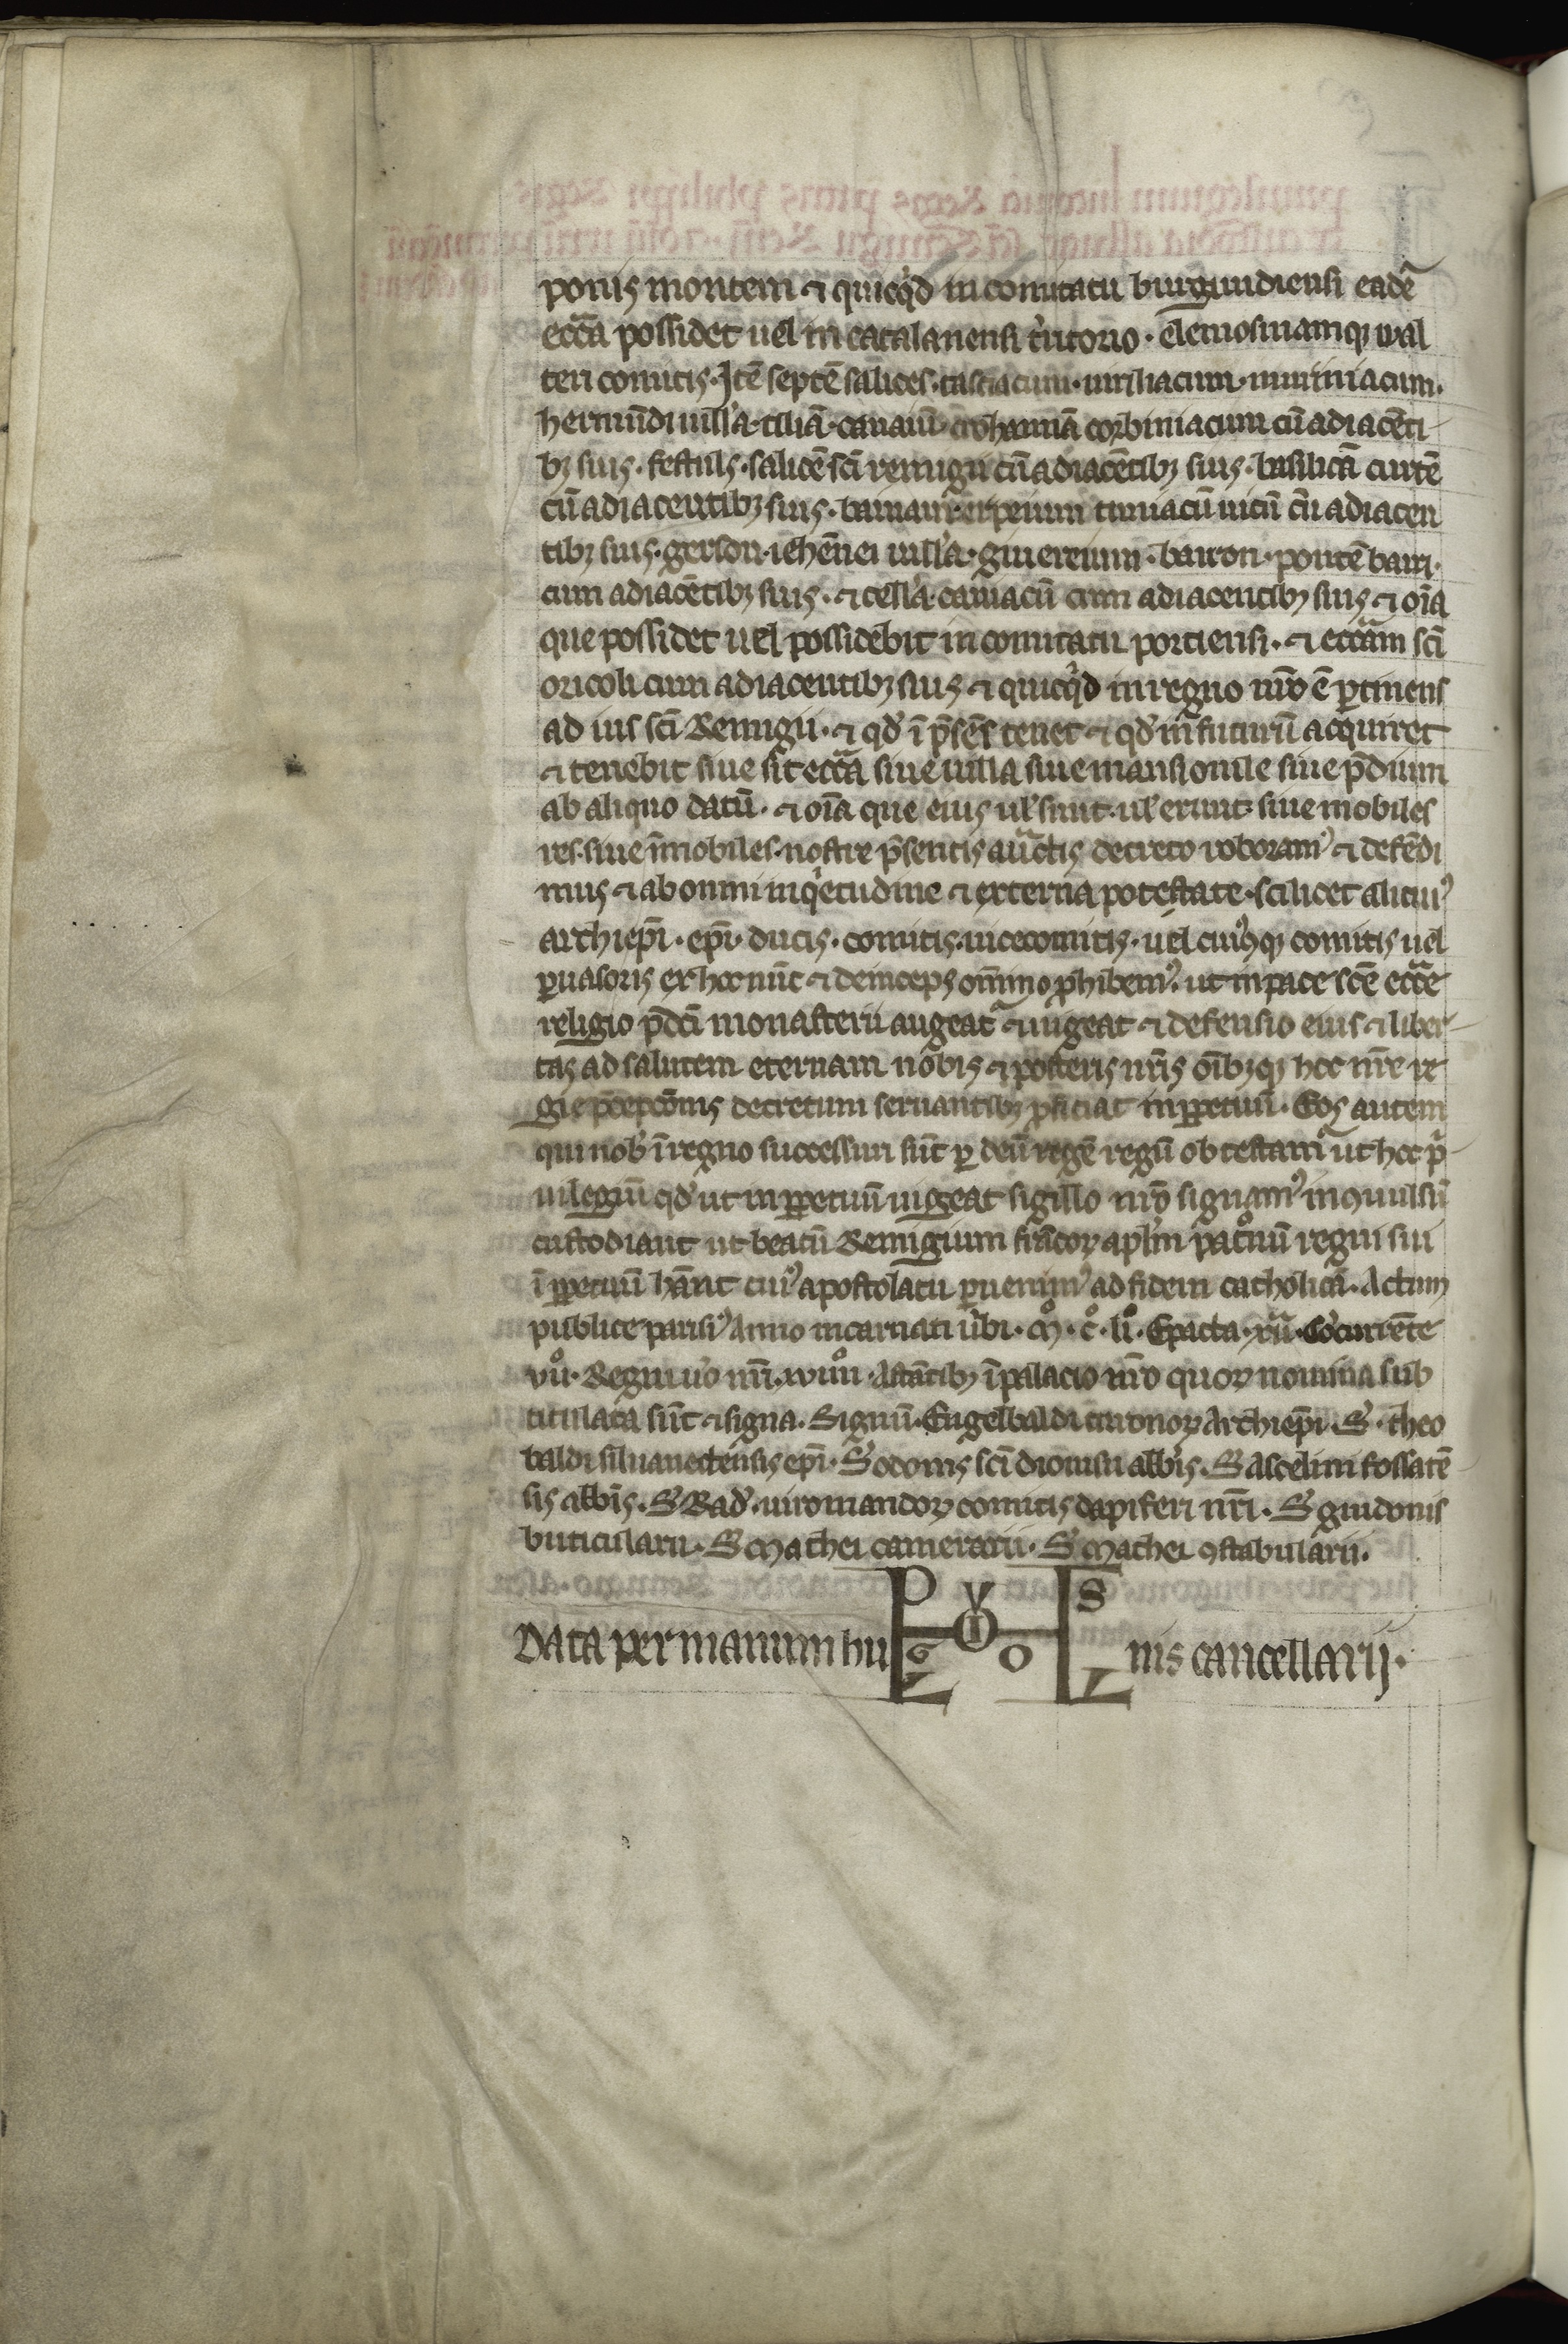 ponis montem ⁊ quicq̇d in comitatu burgundiensi eadē
ecc̄a possidet uel in catalanensi t̓ritorio · elemosinamqȝ wal
teri comitis · Jtē septē salices · tasciacum · uirisiacum · muriniacum ·
hermūdi uill'a · tiliā · cauaui · crohannā corbiniacum cū adiacēti
bȝ suis · festulis · salicē sc̄i remigii cū adiacētibȝ suis · basilicā curtē
cū adiacentibȝ suis · tumiacū uicū cū adiacen
tibȝ suis · gerson · iehēnei uill'a · giuereium · bairon · pontē bairi ·
cum adiacētibȝ suis · ⁊ cell'a · cauiacū cum adiacentibȝ suis ⁊ oīa
que possidet uel possidebit in comitatu portiensi · ⁊ ecc̄am sc̄i
oricoli cum adiacentibȝ suis ⁊ quicq̇d in regno nr̄o ē ꝑtinens
ad ius sc̄i Remigii · ⁊ qd̓ ī p̄sēs tenet ⁊ qd̓ in futurū acquiret
⁊ tenebit siue sit ecc̄a siue uilla siue mansionile siue p̄dium
ab aliquo datū · ⁊ oīa que eius ul̓ sunt · ul̓ erunt · siue mobiles
res · siue īmobiles · nostre p̄sentis auct̄is decreto roboram᾿ ⁊ defēdi
mus ⁊ ab omni inq̇etudine ⁊ externa potestate · scilicet alicui᾿
archiep̄i · ep̄i · ducis · comitis · uicecomitis · uel cui᾿cūqȝ comitis uel
ꝑuasoris ex hoc nūc ⁊ deinceps om̄ino ꝓhibem᾿ · ut in pace sc̄e ecc̄e
religio p̄dc̄i monasterii augeat᾿ ⁊ uigeat ⁊ defensio eius ⁊ liber
tas ad salutem eternam nobis ⁊ posteris nr̄is oībȝqȝ hoc nr̄e re
gie p̄cepcōnis decretum seruantibȝ ꝓficiat in ꝑpetuū · Eos autem
qui nob̓ ī regno successuri sūt ꝑ deū regē regū obtestam᾿ ut hoc p̓
uilegiū qd̓ ut in ꝑpetuū uigeat sigillo nr̄o signam᾿ inꝯuulsū
custodiant ut beatū Remigium frācoꝝ apl̄m pat̊nū regni sui
ī ꝑpetuū hānt cui᾿ apostolatu ꝑuenim᾿ ad fidem catholicā · Actum
publice parisi᾿ Anno incarnati u̓bi · mͦ · cͦ · liͦ · Epacta · xiiᵃ · Cōcurrēte
viiͦ · Regni u̓o nr̄i · xviiiiͦ · Astātibȝ ī palacio nr̄o quoꝝ nomina sub
titulata sūt ⁊ signa · Signū · Engelbaldi turonoꝝ Archiep̄i · S᾿ · theo
baldi siluanectensis ep̄i · S᾿ odonis sc̄i dionisii abb̄is · S᾿ Ascelini fossatē
sis abb̄is · S᾿ Rad᾿ · uiromandoꝝ comitis dapiferi nr̄i · S᾿ guidonis
buticularii · S᾿ Mathei camerarii · S᾿ Mathei ꝯstabularii ·
Data per manum hu nis cancellarij ·
P V S
I
G O
L L